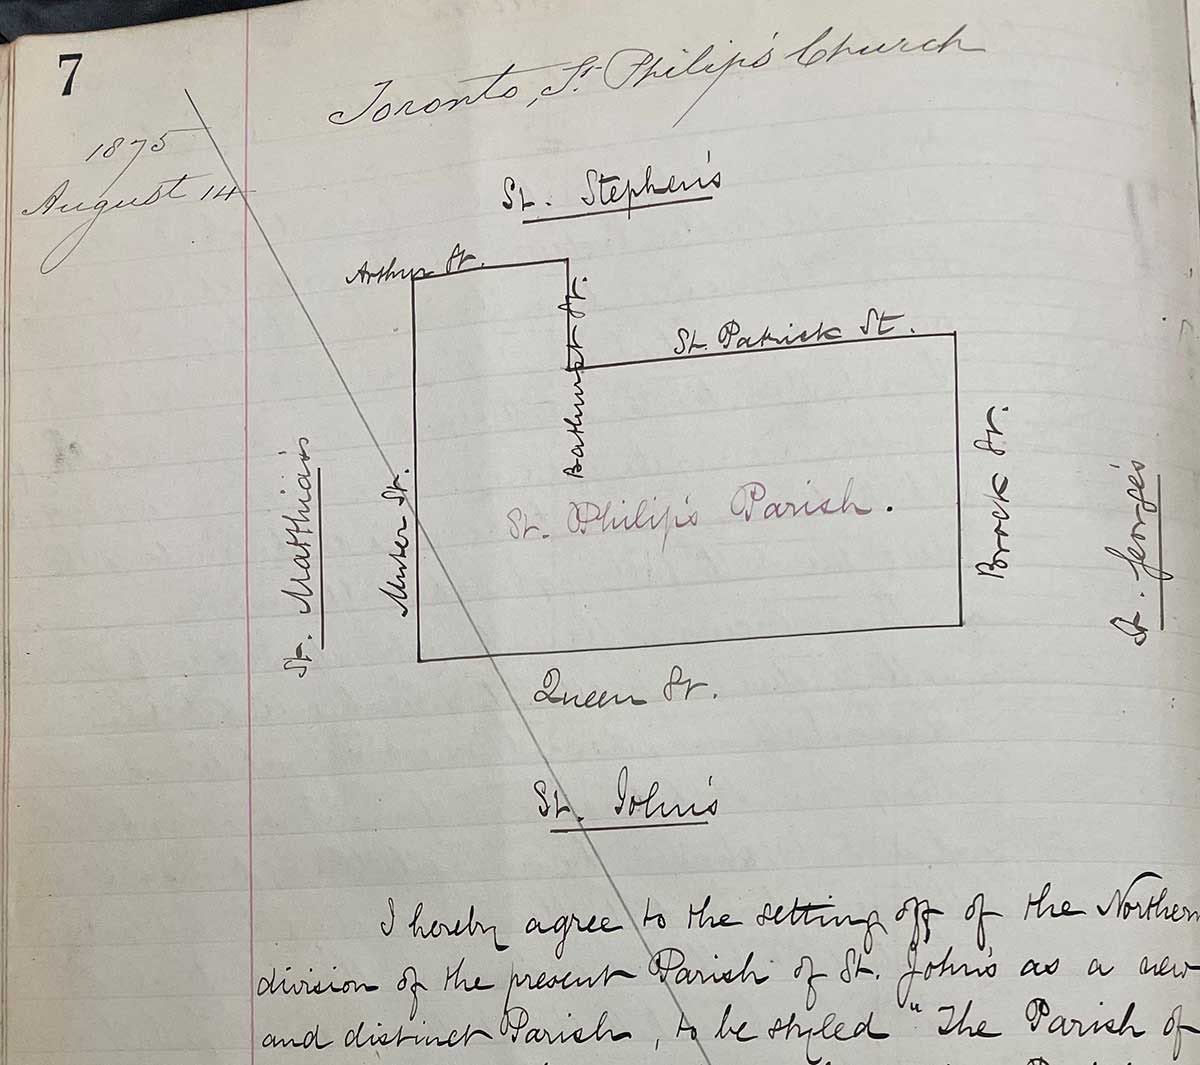 7
Toronto, St. Philip's Church
1875
August 14
St. Stephen's
Arthur St.
Bathurst St.
St. Patrick St.
St. Matthias
Muter St.
St. Philip's Parish.
Brock St.
St. George's
Queen St.
St. John's
I hereby agree to the setting off of the Northern
division of the present Parish of St. John's as a new
and distinct Parish, to be styled "The Parish of